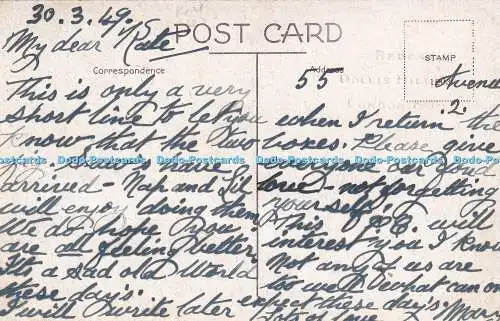 30.3.49.
POST CARD
My dear Kate
Correspondence
This is only a very
short line to let you
know that the two
arrived - Nap and Lil
will enjoy doing them
We do hope you
are all feeling better
Its a sad old World
these days.
I will write later
Address
STAMP
55
Avenue
.2.
when I return the
boxes. Please give
everyone our fond
love - not forgetting
yourself.
This P.C. will
interest you I know
Not any of us are
too well what can one
expect these days. Mar.
Lots of love
Dodo-Postcards Dodo-Postcards Dodo-Postcards Dodo-Postcards Dodo-Postcards